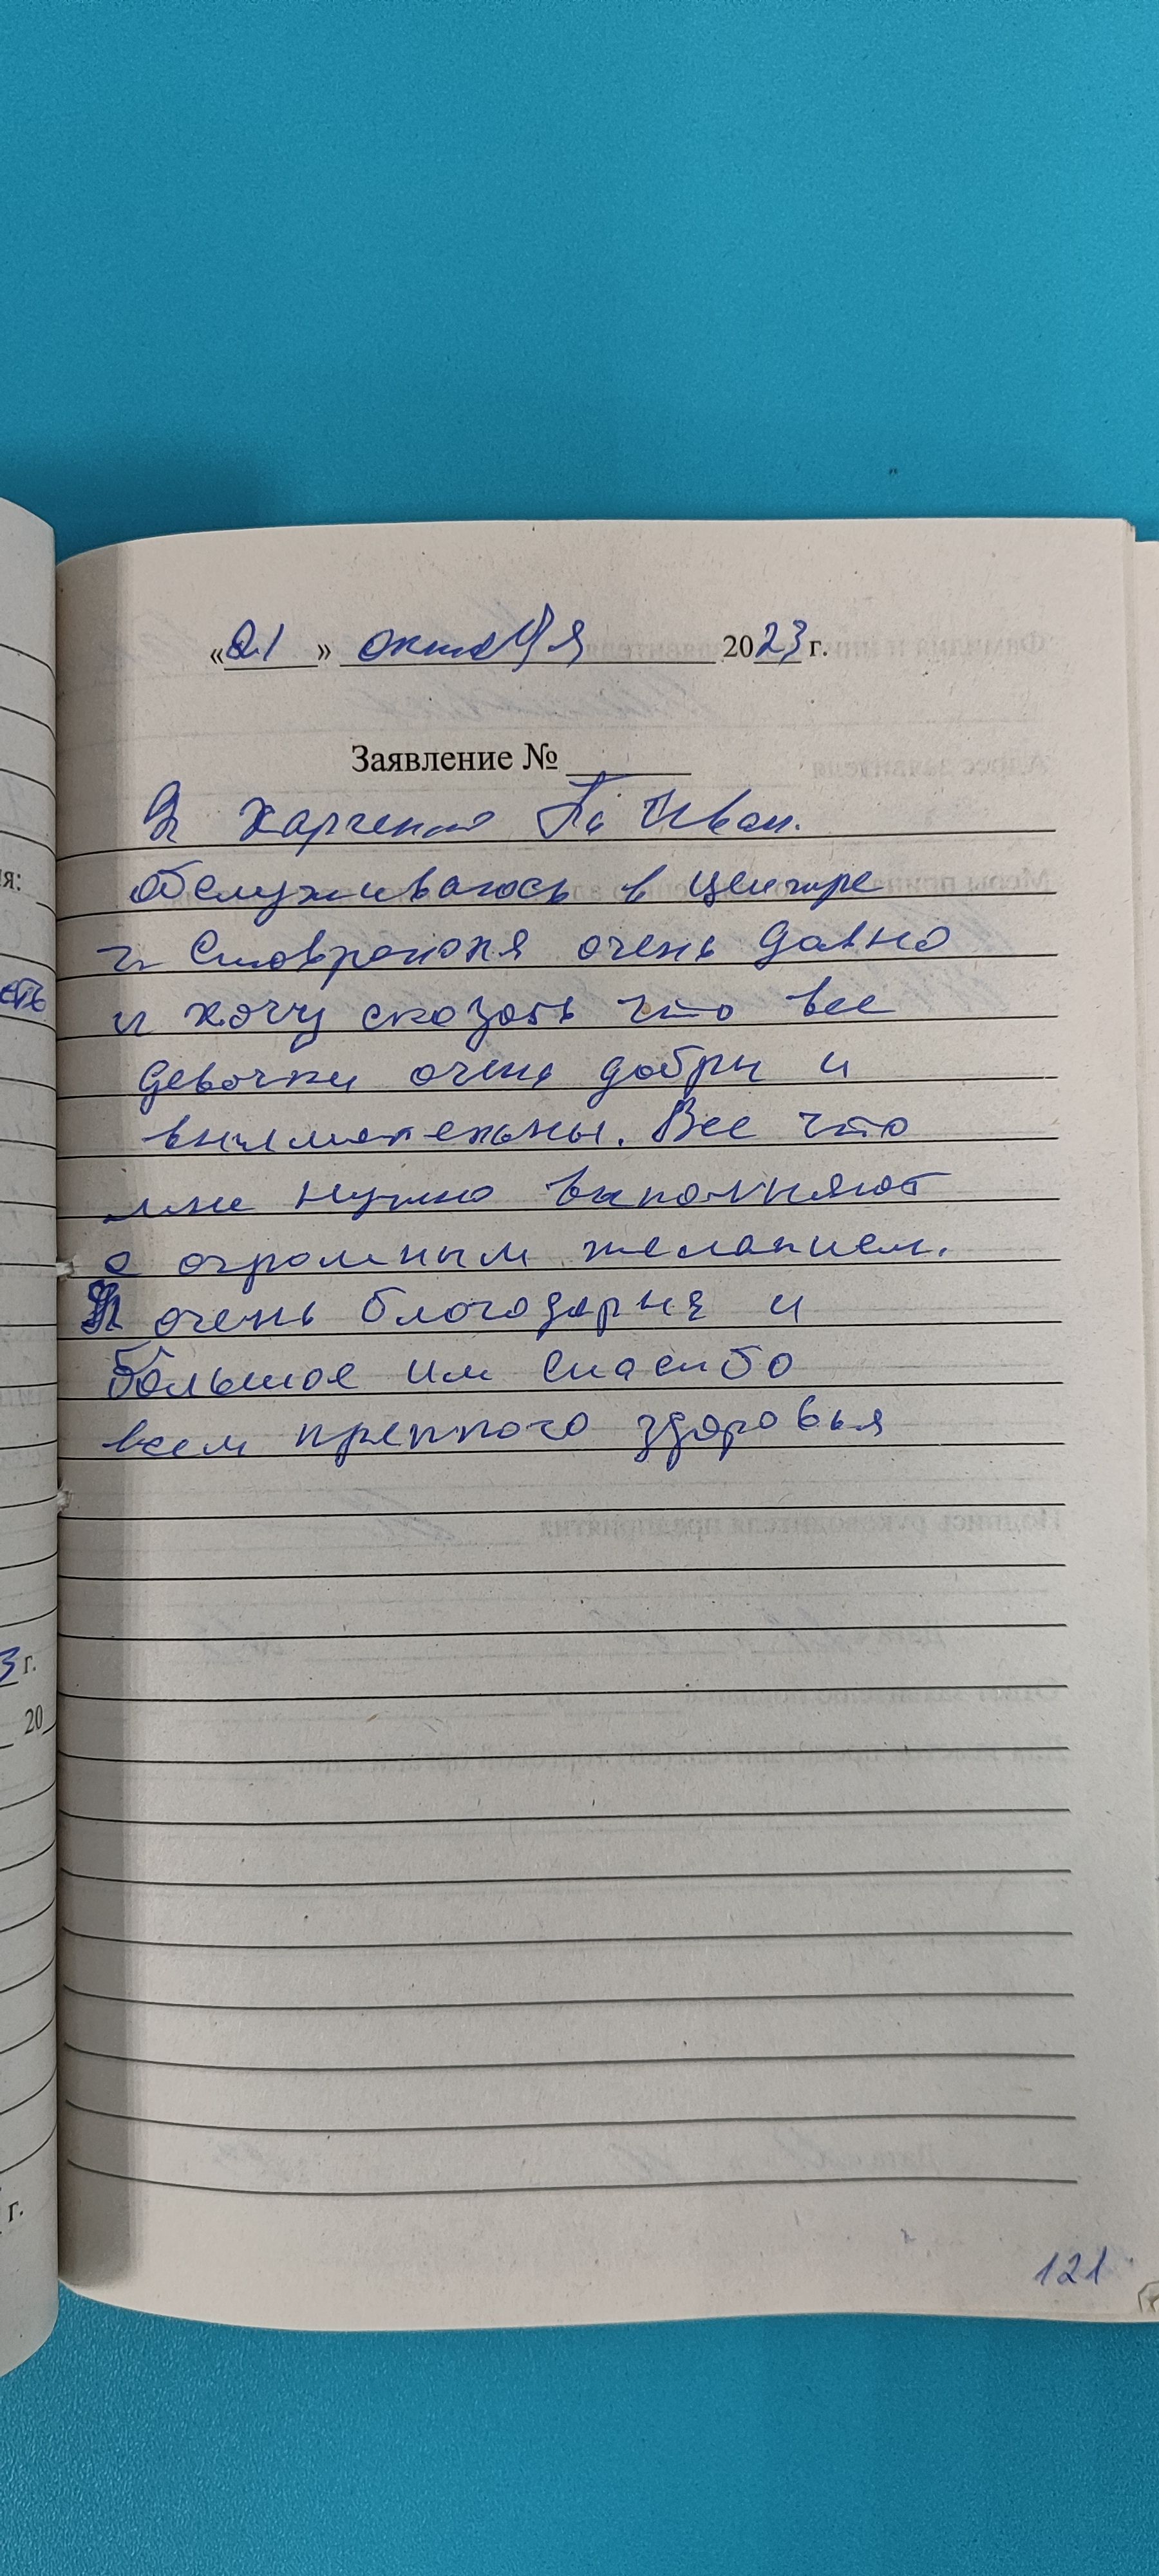 «21» октября 2023 г.
Заявление №
Я Харченко Та Иван.
обслуживаюсь в центре
г. Ставрополя очень давно
и хочу сказать что все
девочки очень добры и
внимательны. Все что
мне нужно выполняют
с огромным желанием.
Я очень благодарна и
большое им спасибо
всем крепкого здоровья
121
ия:
сть
3 г.
20
г.